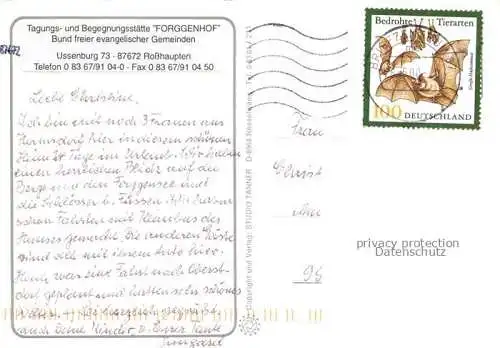 Tagungs- und Begegnungsstätte "FORGGENHOF"
Bund freier evangelischer Gemeinden
Ussenburg 73 - 87672 Roßhaupten
Telefon 0 83 67/91 04-0 - Fax 0 83 67/91 04 50
87672
Liebe Christine,
Ich bin mit noch 3 Frauen aus
Hermsdorf hier in diesem schönen
Haus Tage im Urlaub. Wir haben
einen herrlichen Blick auf die
Berge und den Forggensee und
die Schlösser b. Füssen. Wir haben
schon Fahrten mit Kleinbus des
Hauses gemacht. Die anderen Gäste
sind alle mit ihrem Auto hier.
Heute war eine Fahrt nach Oberst-
dorf geplant und hatten sehr schönes
Wetter. Sei herzlich gegrüßt
auch Deine Kinder, v. Eurer Tante
Copyright und Verlag: STUDIO TANNER
Bedrohte Tierarten
100 DEUTSCHLAND
Frau
Christ
Am
95
privacy protection
Datenschutz